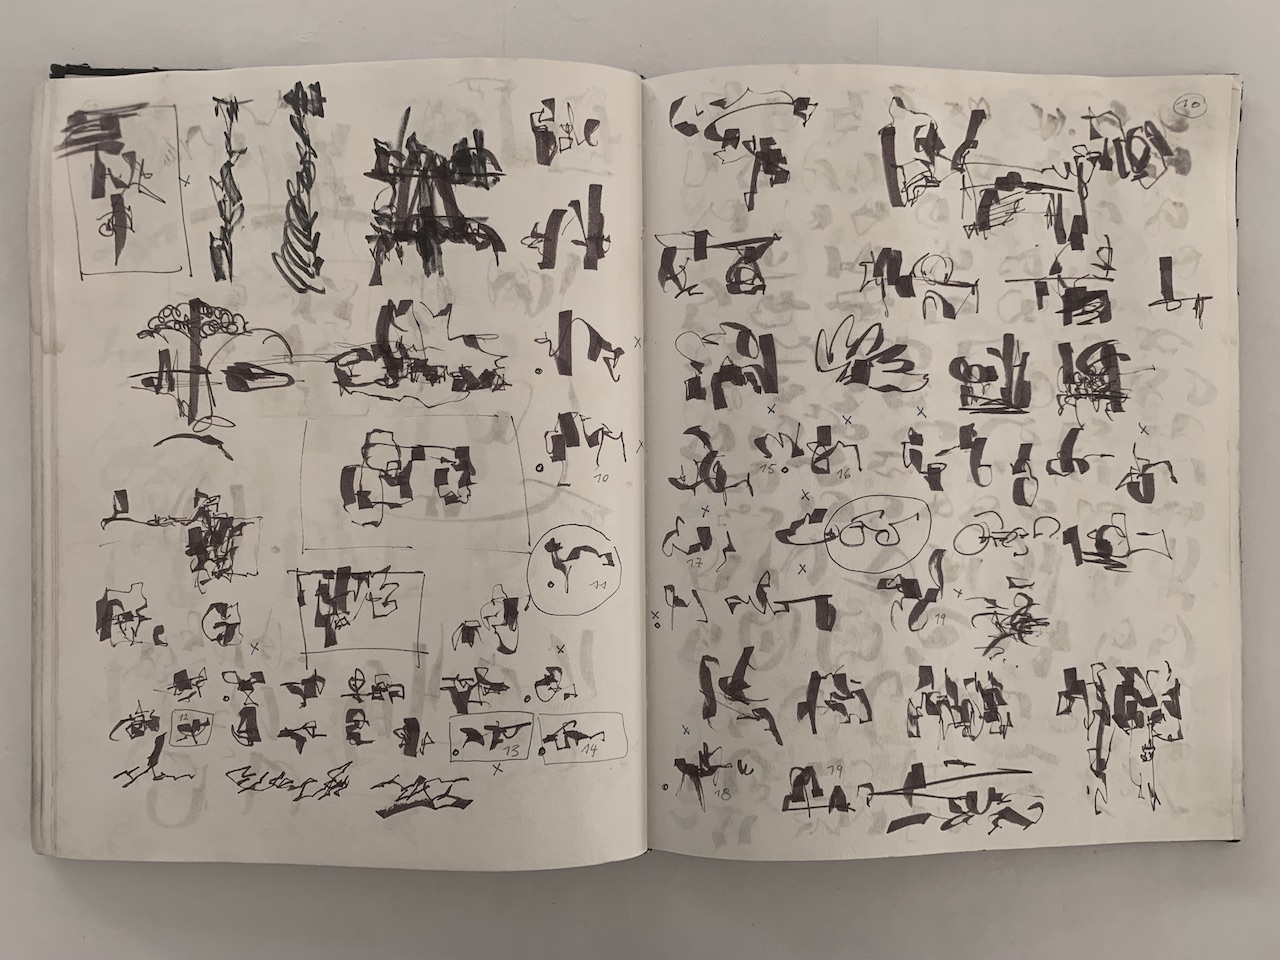 10
11
12
13
14
10
15
16
17
19
18
19